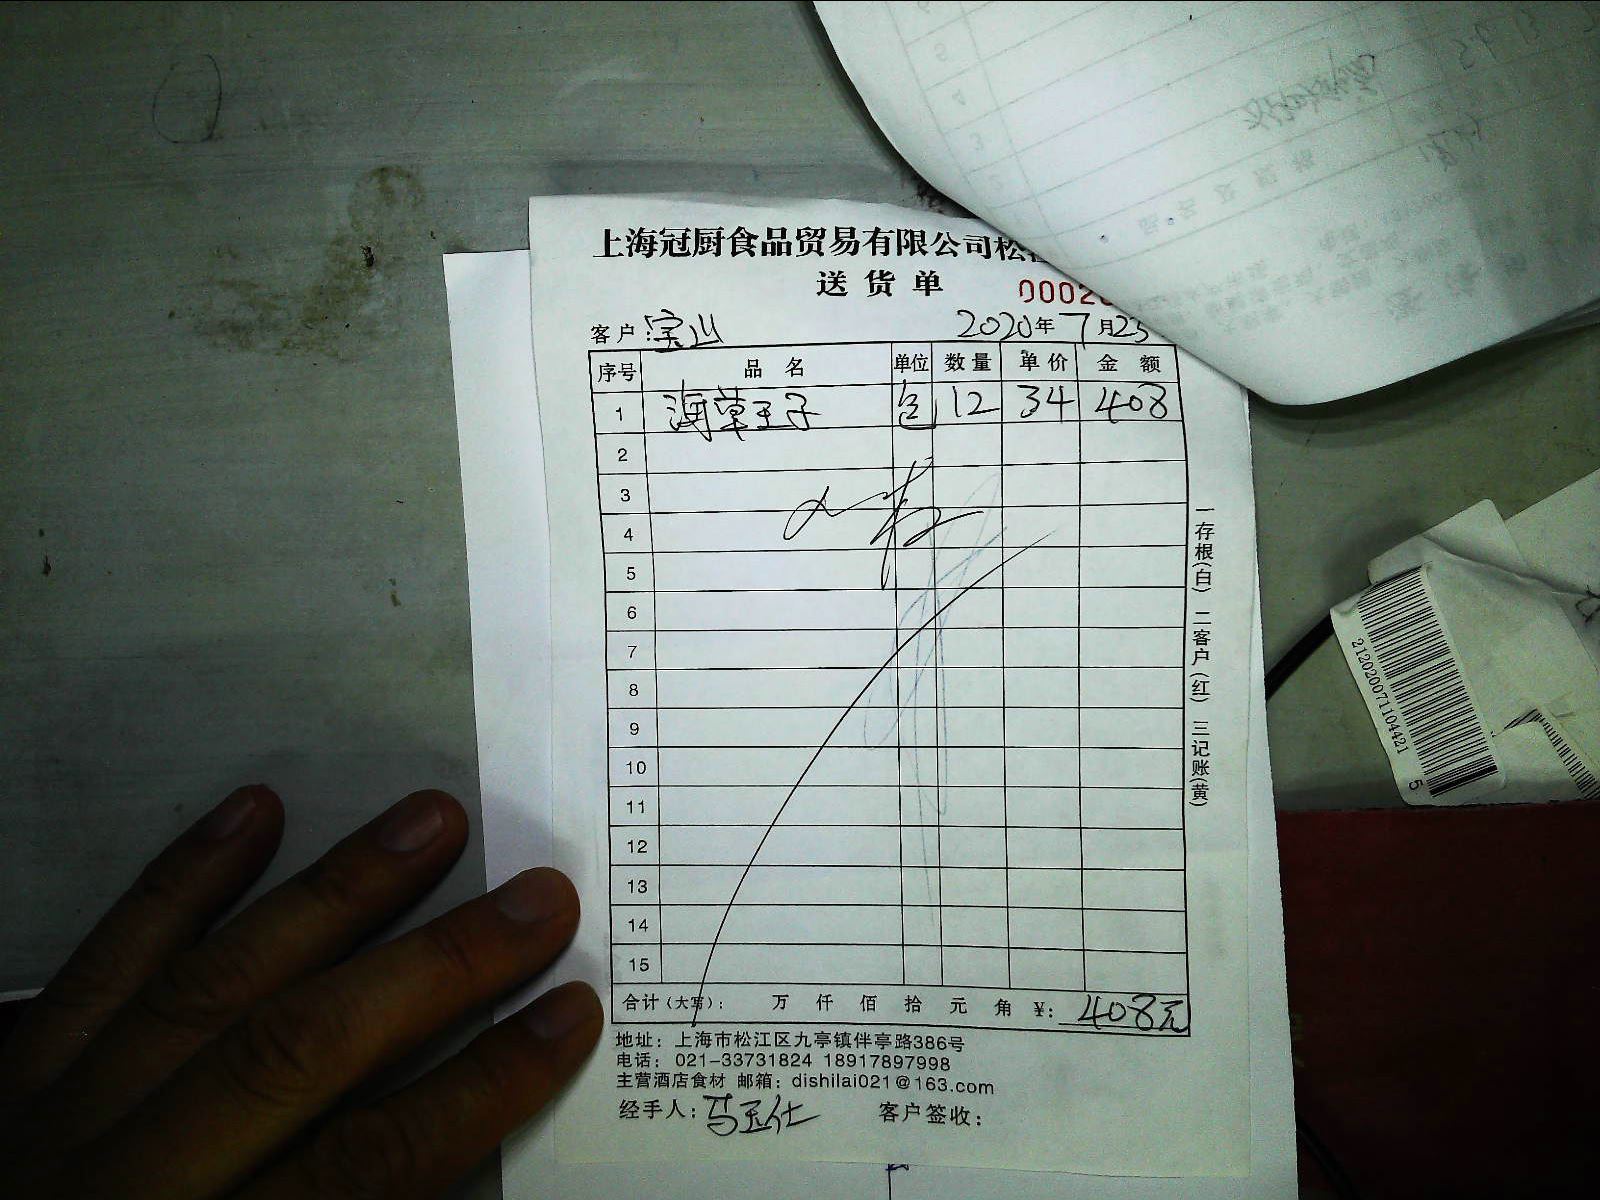 上海冠厨食品贸易有限公司松
送货单
0002
客户:宝山 2020年7月23
序号 品名 单位 数量 单价 金额
1 海草王子 包 12 34 408
2
3
4
5
6
7
8
9
10
11
12
13
14
15
合计(大写): 万 仟 佰 拾 元 角 ¥: 408元
地址: 上海市松江区九亭镇伴亭路386号
电话: 021-33731824 18917897998
主营酒店食材 邮箱: dishilai021@163.com
经手人: 马玉仕 客户签收:
一存根(白) 二客户(红) 三记账(黄)
2120200711044421
5